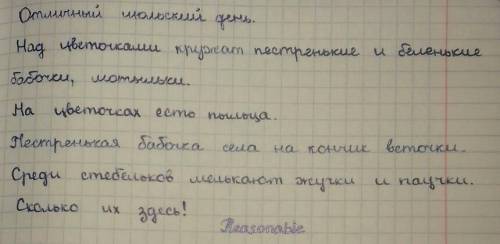 Отличный июльский день.
Над цветочками кружат пестренькие и беленькие
бабочки, мотыльки.
На цветочках есть пыльца.
Пестренькая бабочка села на кончик веточки.
Среди стебельков мелькают жучки и паучки.
Сколько их здесь!
Reasonable